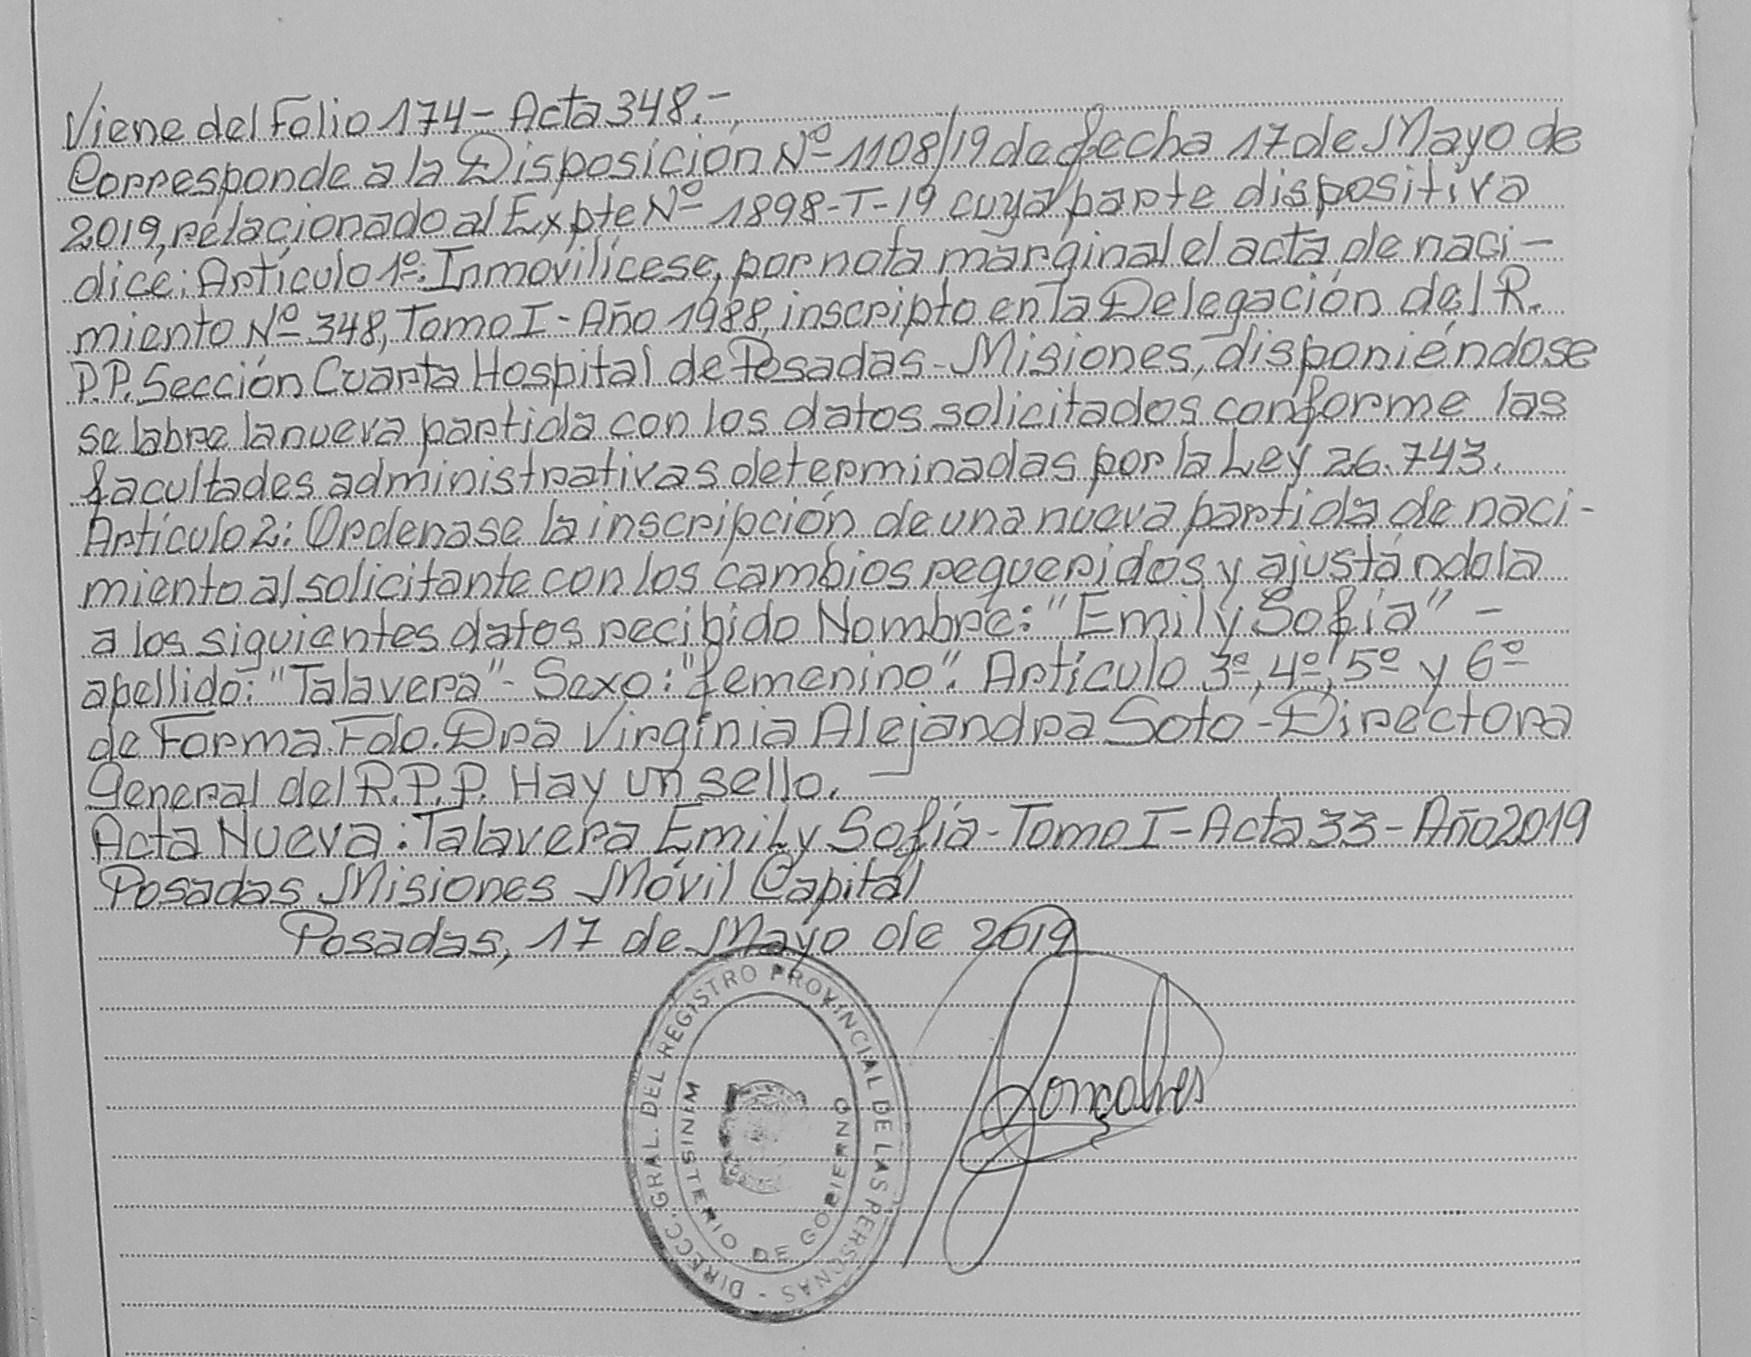 Viene del Folio 174- Acta 348.-
Corresponde a la Disposición Nº 1108/19 de fecha 17 de Mayo de
2019, relacionado al Expte Nº 1898-T-19 cuya parte dispositiva
dice: Artículo 1º: Inmovilícese, por nota marginal el acta de naci-
miento Nº 348, Tomo I - Año 1988, inscripto en la Delegación del R.
P.P. Sección Cuarta Hospital de Posadas - Misiones, disponiéndose
se labre la nueva partida con los datos solicitados conforme las
facultades administrativas determinadas por la Ley 26.743.
Artículo 2: Ordenase la inscripción de una nueva partida de naci-
miento al solicitante con los cambios requeridos y ajustándola
a los siguientes datos recibido Nombre: "Emily Sofía" -
apellido: "Talavera" - Sexo: "femenino". Artículo 3º, 4º, 5º y 6º
de Forma. Fdo. Dra Virginia Alejandra Soto - Directora
General del R.P.P. Hay un sello.
Acta Nueva: Talavera Emily Sofía - Tomo I - Acta 33 - Año 2019
Posadas Misiones Móvil Capital
Posadas, 17 de Mayo de 2019
DIRECC. GRAL. DEL REGISTRO PROVINCIAL DE LAS PERSONAS -
MINISTERIO DE GOBIERNO
Gonçalves